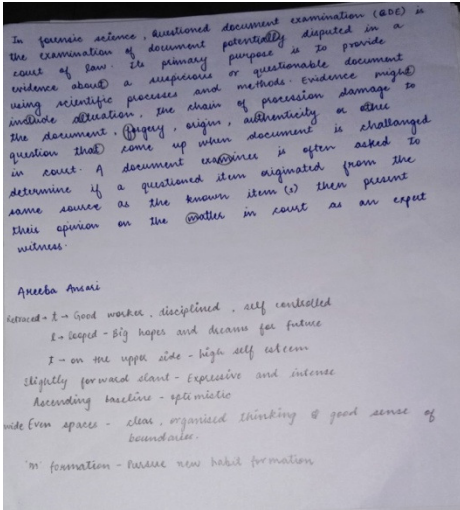 In forensic science, Questioned document examination (QDE) is
the examination of document potentially disputed in a
court of law. Its primary purpose is to provide
evidence about a suspicious or questionable document
using scientific processes and methods. Evidence might
include alteration, the chain of procession damage to
the document, forgery, origin, authenticity or other
question that come up when document is challanged
in court. A document examiner is often asked to
determine if a questioned item originated from the
same source as the known item (s) then present
their opinion on the matter in court as an expert
witness.
Areeba Ansari
Retraced → t → Good worker, disciplined, self controlled
l → looped - Big hopes and dreams for future
t → on the upper side - high self esteem
Slightly forward slant - Expressive and intense
Ascending baseline - optimistic
wide Even spaces - clear, organised thinking & good sense of
boundaries.
'm' formation - Pursue new habit formation